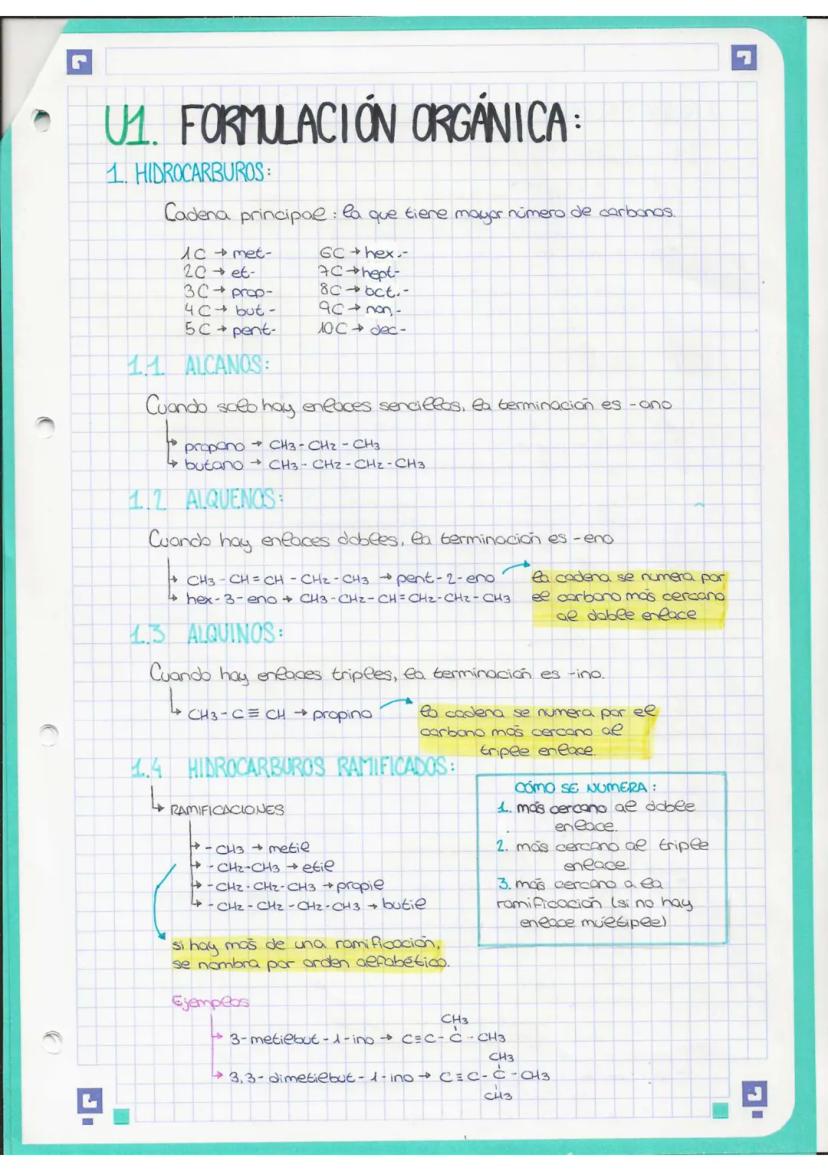 U1. FORMULACIÓN ORGÁNICA:
1. HIDROCARBUROS:
Cadena principal: la que tiene mayor número de carbonos.
1C → met-
2C → et-
3C → prop-
4C → but-
5C → pent-
6C → hex.-
7C → hept-
8C → oct.-
9C → non,-
10C → dec-
1.1 ALCANOS:
Cuando solo hay enlaces sencillos, la terminación es -ano
↳ propano → CH3 - CH2 - CH3
↳ butano → CH3 - CH2 - CH2 - CH3
1.2 ALQUENOS:
Cuando hay enlaces dobles, la terminación es -eno
↳ CH3 - CH = CH - CH2 - CH3 → pent-2-eno
↳ hex-3-eno → CH3 - CH2 - CH = CH2 - CH2 - CH3
la cadena se numera por
el carbono más cercano
al doble enlace
1.3 ALQUINOS:
Cuando hay enlaces triples, la terminación es -ino.
↳ CH3 - C ≡ CH → propino
la cadena se numera por el
carbono más cercano al
triple enlace.
1.4 HIDROCARBUROS RAMIFICADOS:
↳ RAMIFICACIONES
↳ - CH3 → metil
↳ - CH2-CH3 → etil
↳ - CH2 - CH2 - CH3 → propil
↳ - CH2 - CH2 - CH2 - CH3 → butil
CÓMO SE NUMERA:
1. más cercano al doble
enlace.
2. más cercano al triple
enlace
3. más cercano a la
ramificación (si no hay
enlace múltiple)
si hay más de una ramificación,
se nombra por orden alfabético.
Ejemplos
CH3
↳ 3-metilbut-1-ino → C≡C - C - CH3
CH3
↳ 3,3-dimetilbut-1-ino → C≡C - C - CH3
CH3